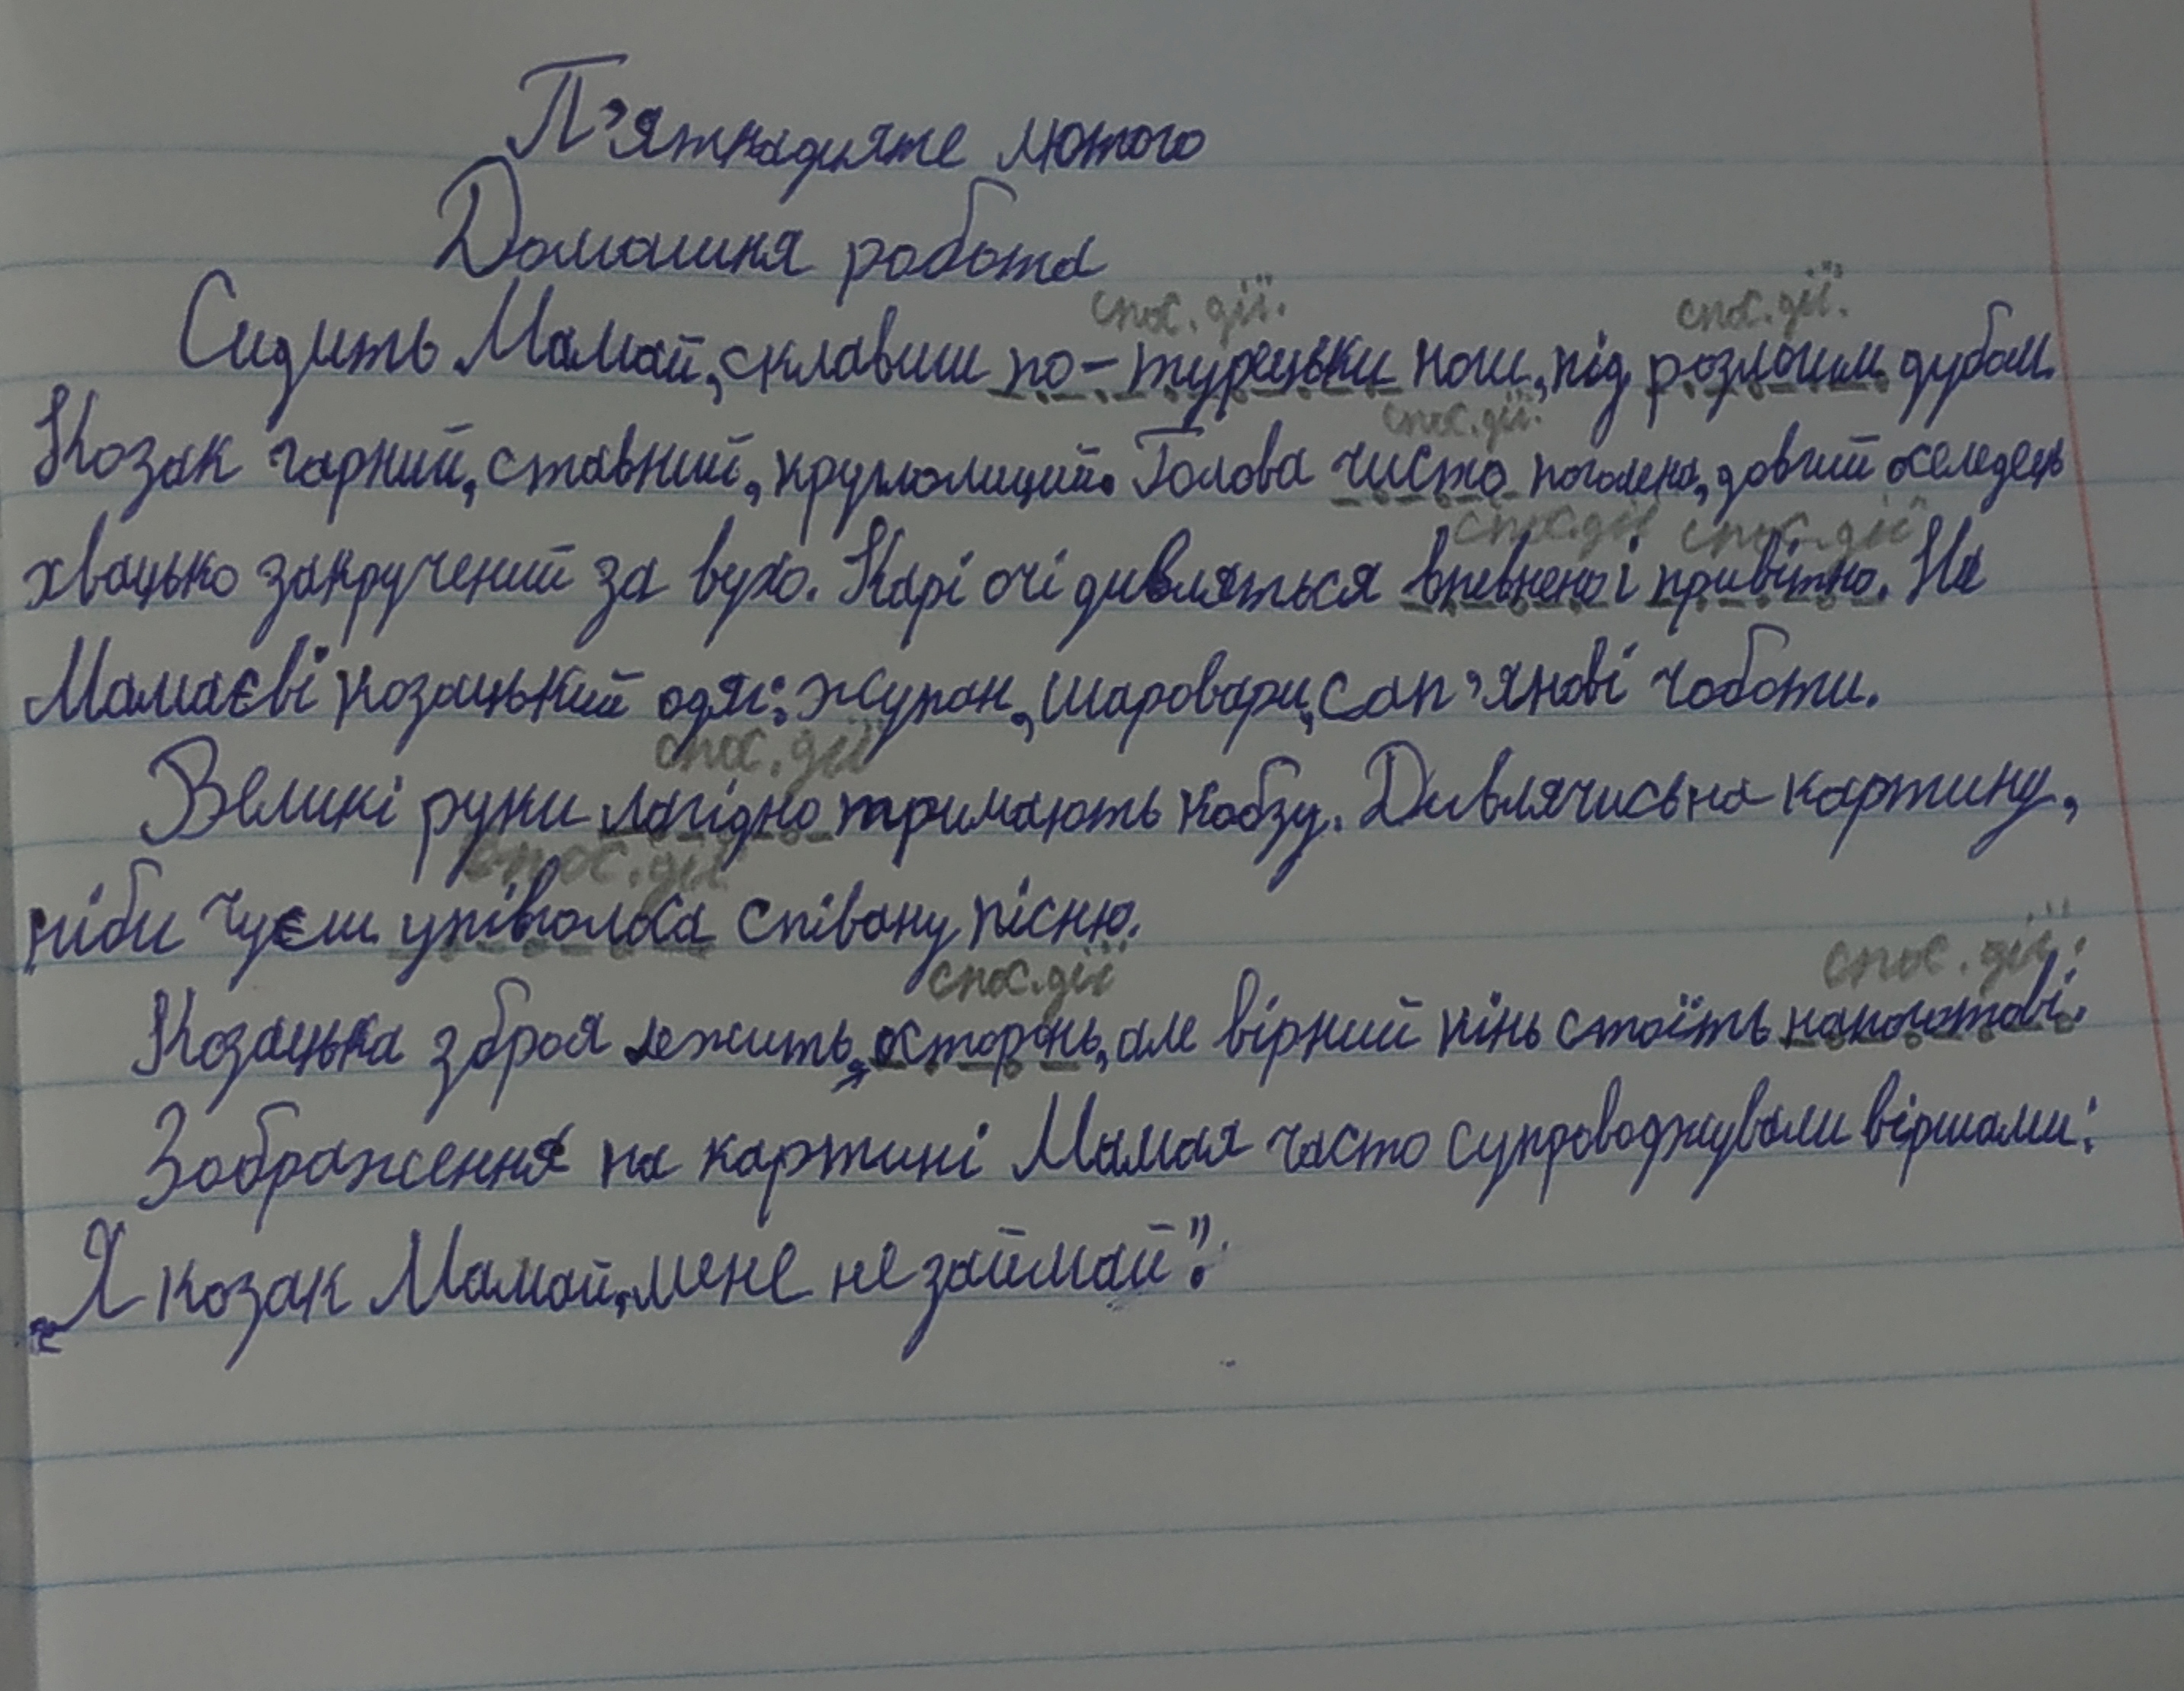 П'ятнадцяте лютого
Домашня робота
спос. дії. спос. дії.
Сидить Мамай, склавши по-турецьки ноги, під розлогим дубом.
спос. дії.
Козак гарний, ставний, круглолиций. Голова чисто поголена, довгий оселедець
спос. дії спос. дії
хвацько закручений за вухо. Карі очі дивляться впевнено і привітно. На
Мамаєві козацький одяг: жупан, шаровари, сап'янові чоботи.
спос. дії
Великі руки лагідно тримають кобзу. Дивлячись на картину,
спос. дії
ніби чуєш упівголоса співану пісню.
спос. дії спос. дії.
Козацька зброя лежить осторонь, але вірний кінь стоїть напоготові.
Зображення на картині Мамая часто супроводжували віршами:
„Я козак Мамай, мене не займай".